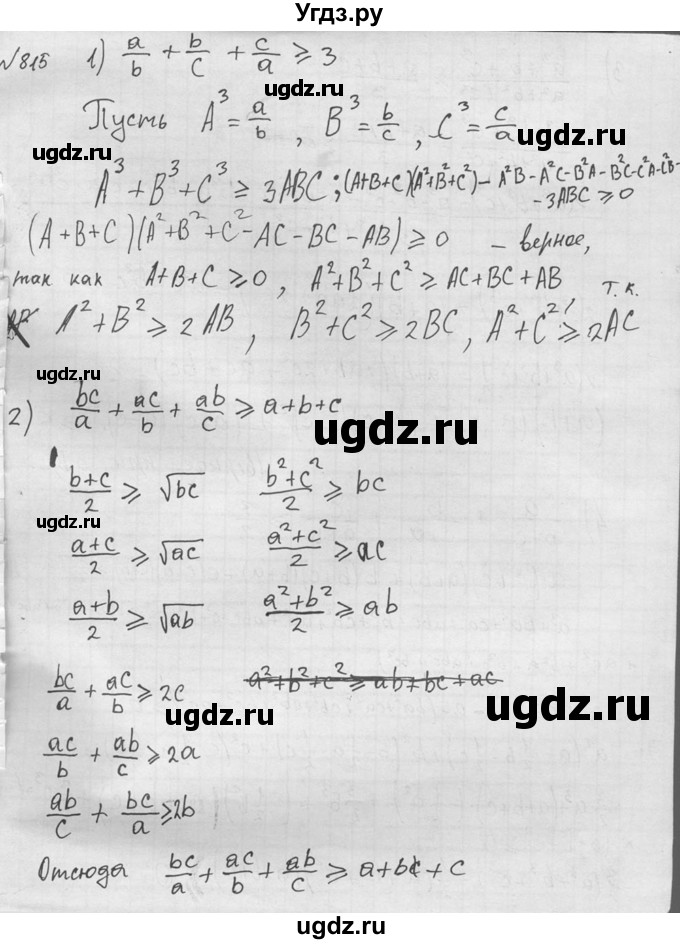 Угдз.ру
№815 1) a/b + b/c + c/a ≥ 3
ugdz.ru
Пусть A³ = a/b, B³ = b/c, C³ = c/a
ugdz.ru
ugdz.ru
A³ + B³ + C³ ≥ 3ABC; (A+B+C)(A²+B²+C²) - A²B - A²C - B²A - B²C - C²A - C²B -
- 3ABC ≥ 0
(A+B+C)(A²+B²+C²-AC-BC-AB) ≥ 0 - верное,
ugdz.ru
так как A+B+C ≥ 0, A²+B²+C² ≥ AC+BC+AB т.к.
A²+B² ≥ 2AB, B²+C² ≥ 2BC, A²+C² ≥ 2AC
ugdz.ru
2) bc/a + ac/b + ab/c ≥ a+b+c
ugdz.ru
(b+c)/2 ≥ √bc (b²+c²)/2 ≥ bc
ugdz.ru
(a+c)/2 ≥ √ac (a²+c²)/2 ≥ ac
(a+b)/2 ≥ √ab (a²+b²)/2 ≥ ab
ugdz.ru
bc/a + ac/b ≥ 2c a²+b²+c² ≥ ab+bc+ac
ugdz.ru
ac/b + ab/c ≥ 2a
ab/c + bc/a ≥ 2b
ugdz.ru
Отсюда bc/a + ac/b + ab/c ≥ a+b+c
ugdz.ru